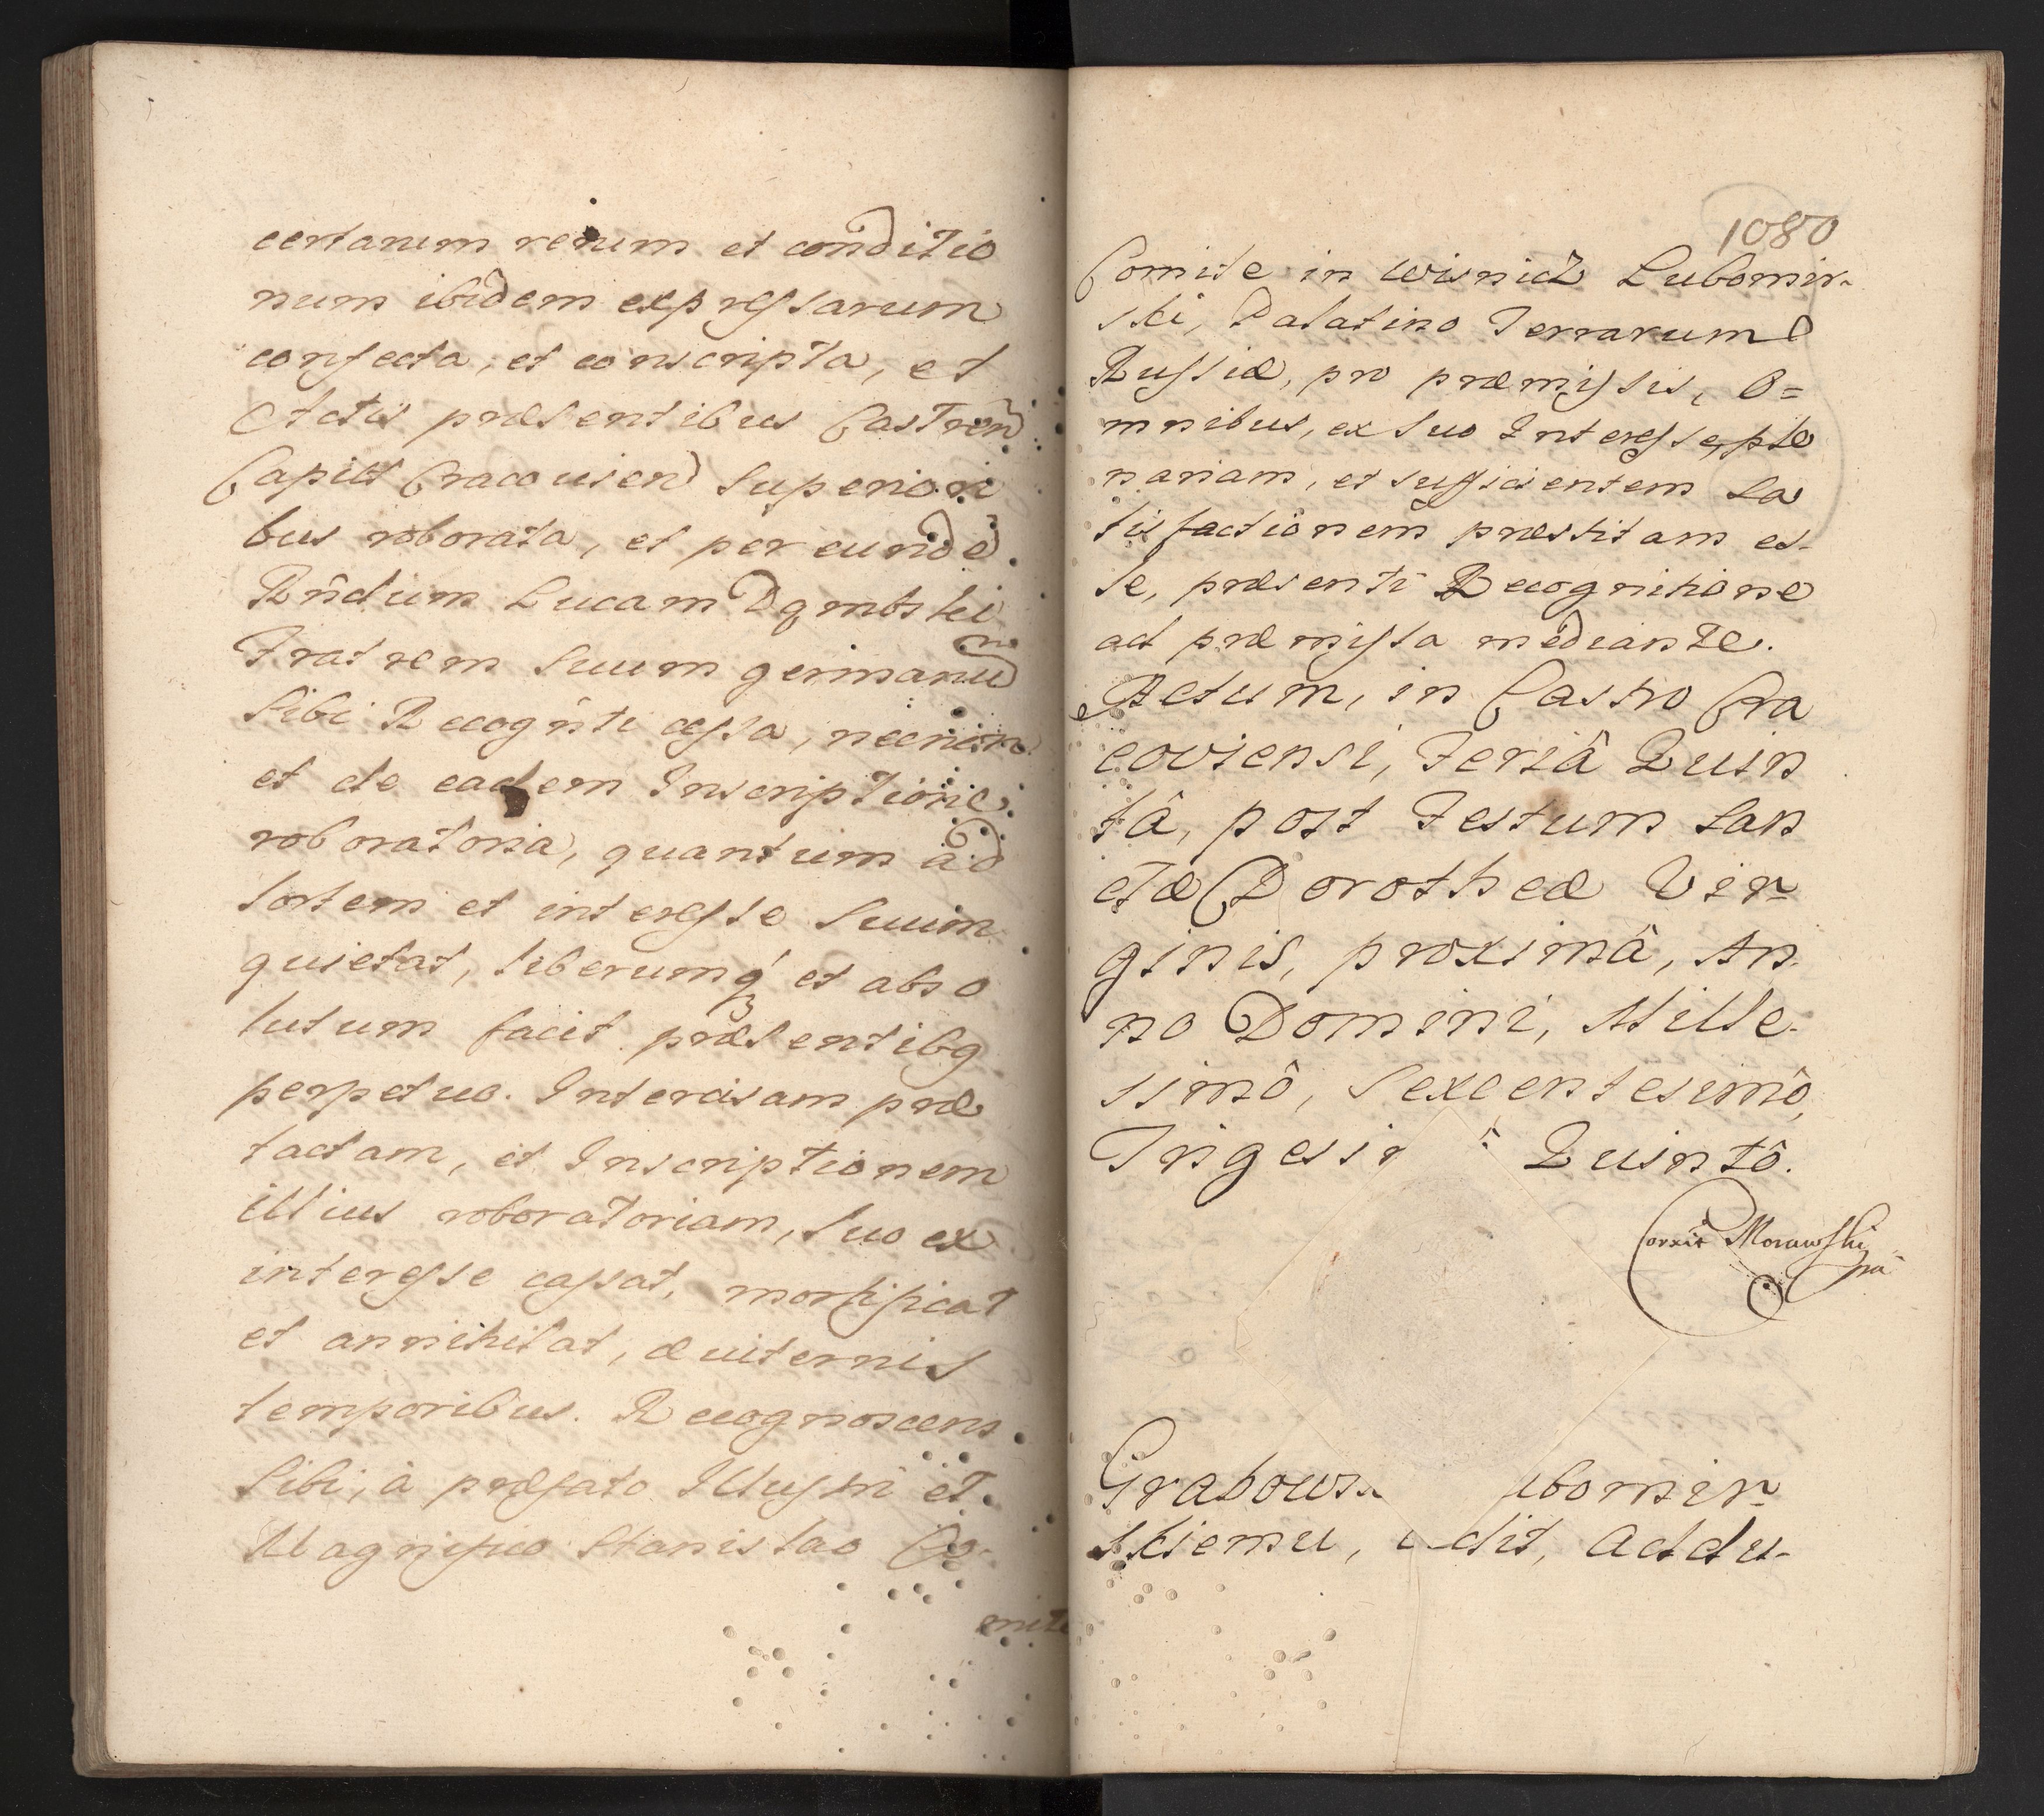 certarum rerum et conditio
num ibidem expressarum
confecta, et conscripta, et
Actis præsentibus Castren
Capitt Cracovien Superiori
bus roborata, et per eunde
Rndum Lucam Dąmbski
Fratrem Suum germanu
Sibi Recognti cessa, necnon
et de eadem Inscriptione
roboratoria, quantum ad
Sortem et interesse Suum
quietat, liberumq et abso
lutum facit præsentibq
perpetuo. Intercisam præ
tactam, et Inscriptionem
illius roboratoriam, Suo ex
interesse cassat, mortificat
et annihilat, æviternis
temporibus. Recognoscens
Sibi, à præfato Illustri et
Magnifico Stanislao Co-
mite
1080
Comite in Wisnicz Lubomir-
ski, Palatino Terrarum
Russiæ, pro præmissis, O=
mnibus, ex Suo Interesse, ple
nariam, et sufficientem sa
tisfactionem præstitam es-
se, præsenti Recognitione
ad præmissa mediante.
Actum, in Castro Cra
coviensi, Feriâ Quin
tâ, post Festum San
ctæ Dorotheæ Vir-
ginis, proximâ, An-
no Domini, Mille-
simô, Sexcentesimô,
Quintô.
Corrxit Morawski
mp
Lubomir-
skiemu, Addu-